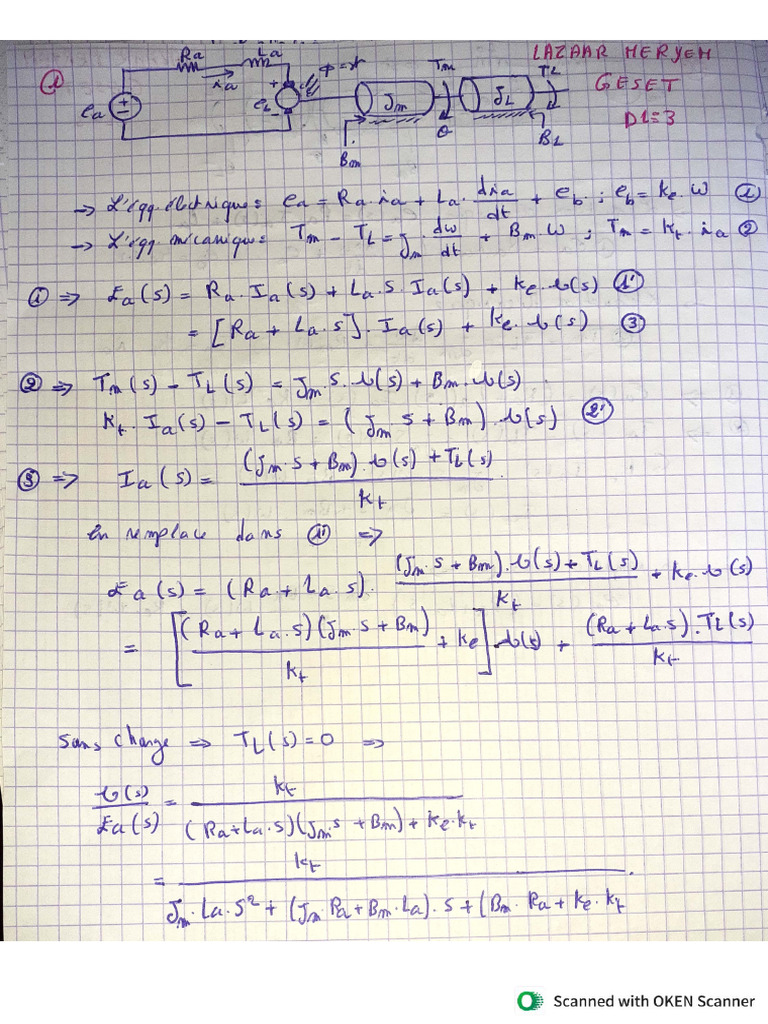 LAZAAR MERYEM
GESET
D1=3
①
Ra La
ia
φ=
ea
eb
Tm TL
Jm JL
θ
Bm BL
→ L'éqq électrique: ea = Ra. ia + La. dia/dt + eb ; eb = ke. w ①
→ L'éqq mécanique: Tm - TL = Jm. dw/dt + Bm w ; Tm = kt. ia ②
① => Ea(s) = Ra. Ia(s) + La. s. Ia(s) + ke. ω(s) ①'
= [Ra + La. s]. Ia(s) + ke. ω(s) ③
② => Tm(s) - TL(s) = Jm s. ω(s) + Bm. ω(s)
kt. Ia(s) - TL(s) = (Jm s + Bm). ω(s) ②'
③ => Ia(s) = ((Jm. s + Bm). ω(s) + TL(s)) / kt
En remplace dans ①' =>
Ea(s) = (Ra + La. s). ((Jm. s + Bm). ω(s) + TL(s)) / kt + ke. ω(s)
= [((Ra + La. s)(Jm. s + Bm)) / kt + ke] ω(s) + ((Ra + La. s). TL(s)) / kt
Sans charge => TL(s) = 0 =>
ω(s)/Ea(s) = kt / ((Ra + La. s)(Jm. s + Bm) + ke. kt)
= kt / (Jm. La. s² + (Jm. Ra + Bm. La). s + (Bm. Ra + ke. kt
Scanned with OKEN Scanner